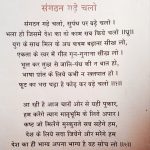 संगठन गढ़े चलो
संगठन गढ़े चलो, सुपंथ पर बढ़े चलो ।
भला हो जिसमें देश का वो काम सब किये चलो ॥धृ॥
युग के साथ मिल के सब कदम बढ़ाना सीख लो,
एकता के स्वर में गीत गुनगुनाना सीख लो,
भूल कर मुख से जाति-पंथ की न बात हो,
भाषा प्रांत के लिये कभी न रक्तपात हो,
फूट का भरा घड़ा है फोड़ कर बढ़े चलो ॥१॥
आ रही है आज चारों ओर से यही पुकार,
हम करेंगे त्याग मातृभूमि के लिये अपार,
कष्ट जो मिलेंगे मुस्कुराते सब सहेंगे हम,
देश के लिये सदा जियेंगे और मरेंगे हम
देश का ही भाग्य अपना भाग्य है ये सोच लो ॥२॥